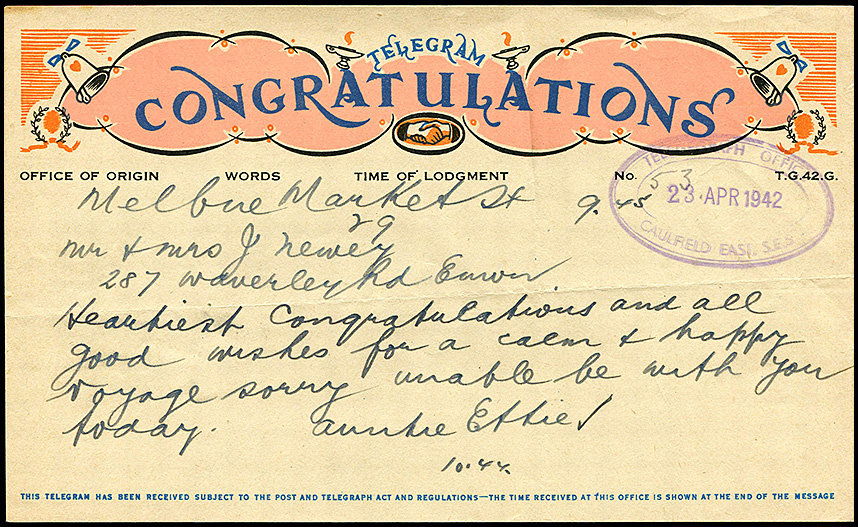 TELEGRAM
CONGRATULATIONS
OFFICE OF ORIGIN WORDS TIME OF LODGMENT No. T.G.42.G.
TELEGRAPH OFFICE
23 APR 1942
CAULFIELD EAST. S.E.5
Melbne Market St 9.45 53
29
Mr & Mrs J Newey
287 Waverley Rd
Heartiest Congratulations and all
good wishes for a calm & happy
voyage sorry unable be with you
today. auntie Ettie
10.44.
THIS TELEGRAM HAS BEEN RECEIVED SUBJECT TO THE POST AND TELEGRAPH ACT AND REGULATIONS—THE TIME RECEIVED AT THIS OFFICE IS SHOWN AT THE END OF THE MESSAGE